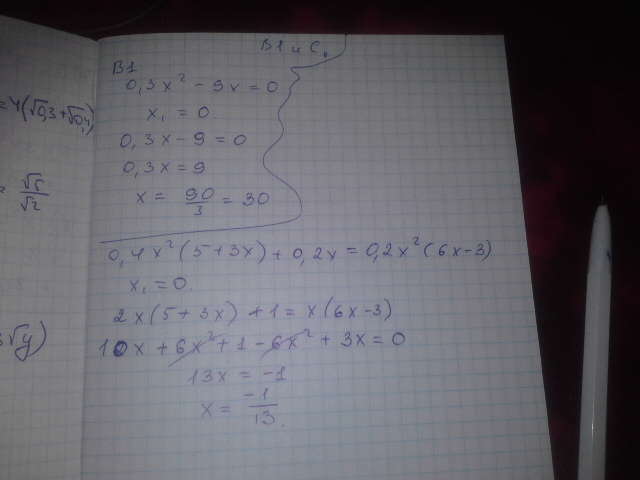 В1 и С
В1
0,3x² - 9x = 0
x₁ = 0.
0,3x - 9 = 0
0,3x = 9
x = 90/3 = 30
0,4x²(5+3x) + 0,2x = 0,2x²(6x-3)
x₁ = 0.
2x(5+3x) + 1 = x(6x-3)
10x + 6x² + 1 - 6x² + 3x = 0
13x = -1
x = -1/13.
=4(√0,3+√0,4)
√2
√y)